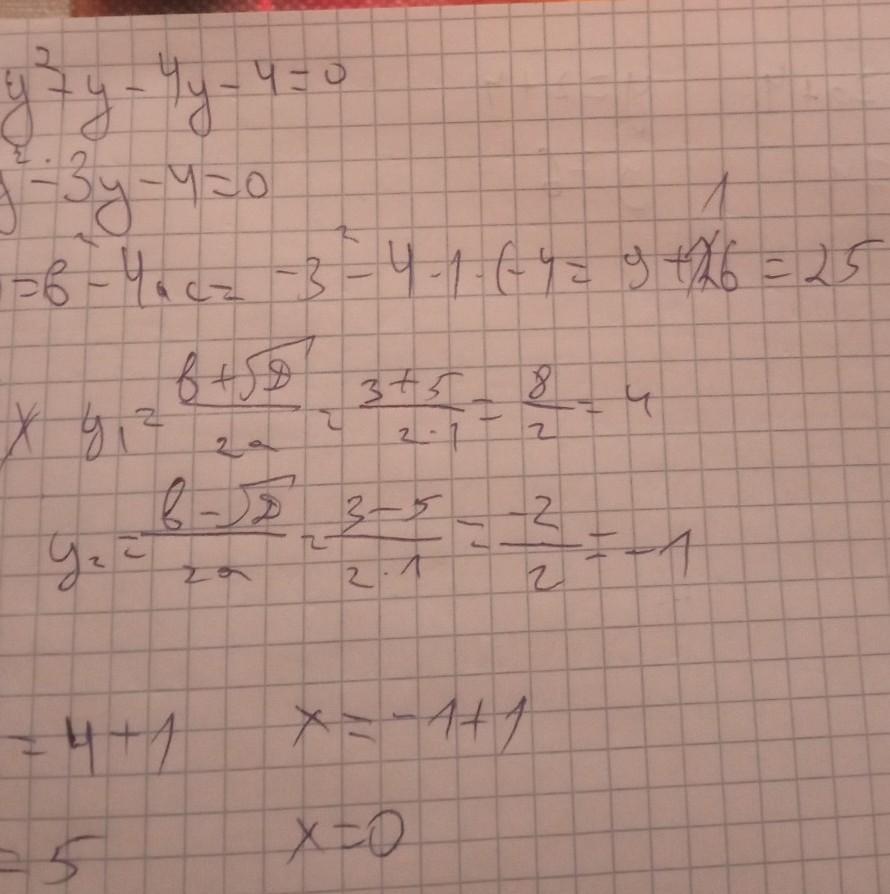 y² + y - 4y - 4 = 0
y² - 3y - 4 = 0
= b² - 4ac = -3² - 4·1·(-4 = 9 + 16 = 25
x y₁ = b+√D / 2a = 3+5 / 2·1 = 8/2 = 4
y₂ = b-√D / 2a = 3-5 / 2·1 = -2/2 = -1
= 4+1 x = -1+1
= 5 x = 0